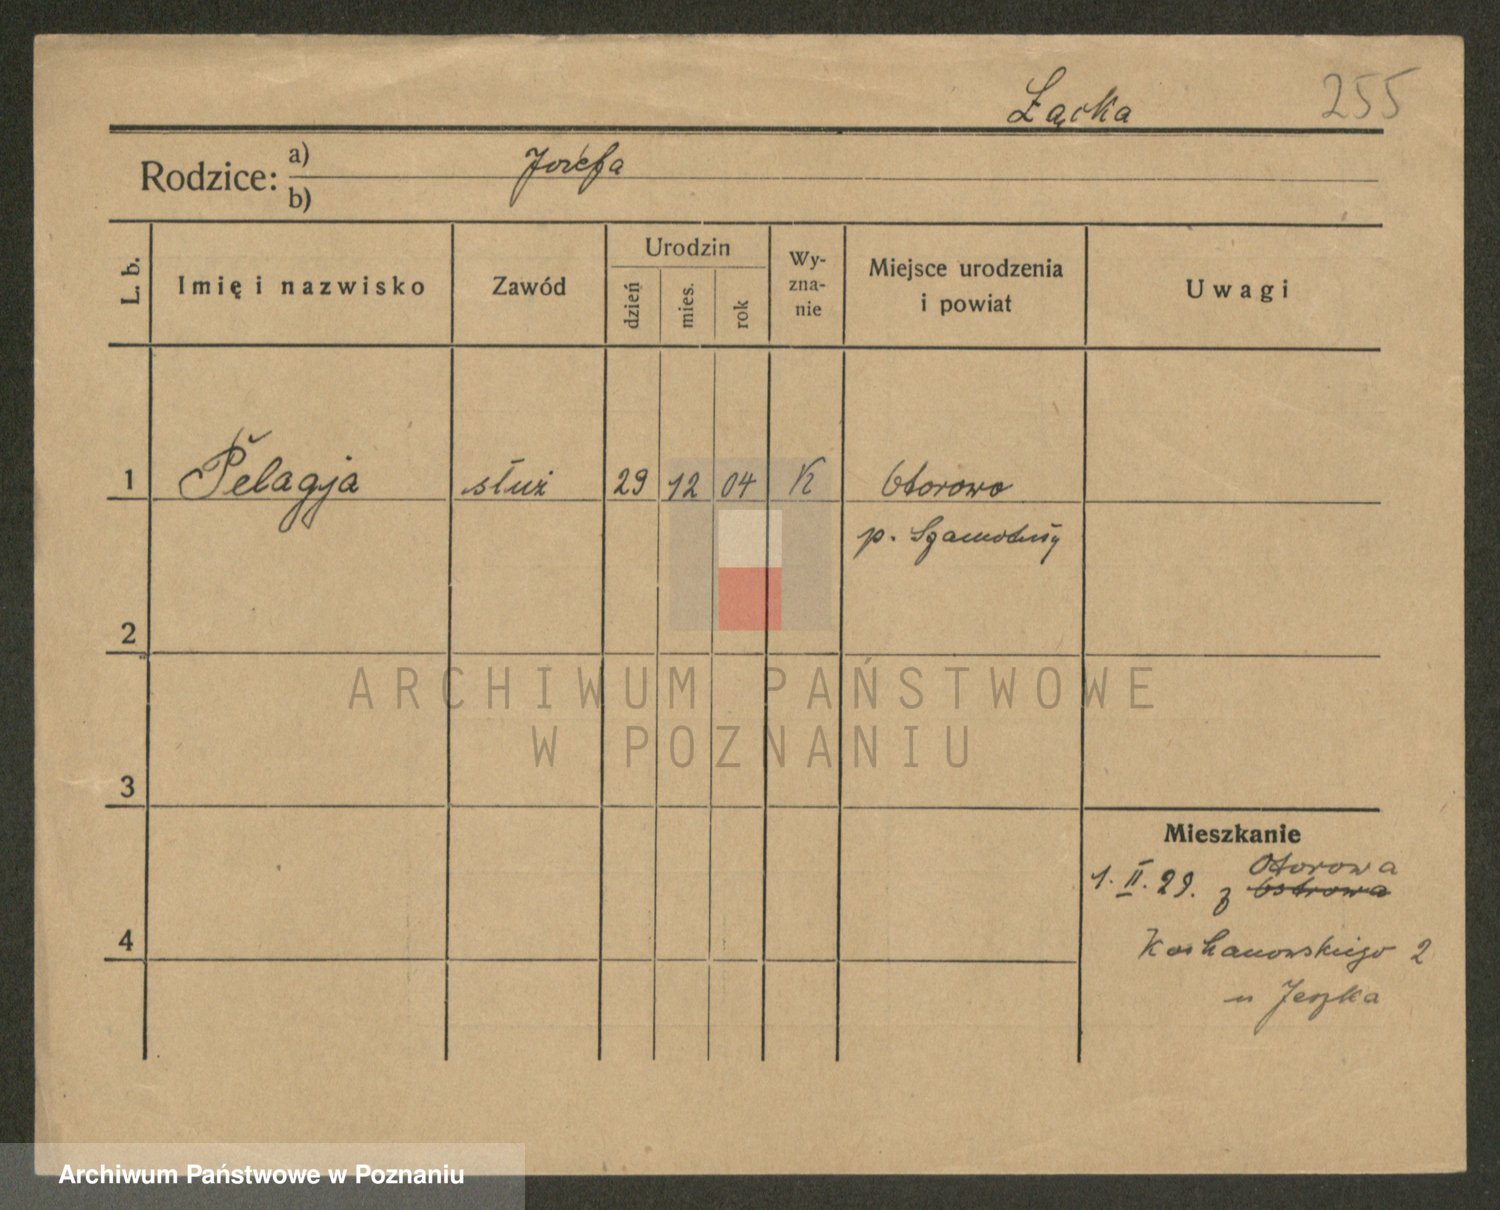 Łącka 255
Rodzice: a) Józefa
b)
L. b.
Imię i nazwisko
Zawód
Urodzin
dzień
mies.
rok
Wy-
zna-
nie
Miejsce urodzenia
i powiat
Uwagi
1 Pelagja służ 29 12 04 K Otorowo
p. Szamotuły
2
3
4
ARCHIWUM PAŃSTWOWE
W POZNANIU
Mieszkanie
Otorowa
1. II. 29. z Ostrowa
Kochanowskiego 2
u Jeszka
Archiwum Państwowe w Poznaniu